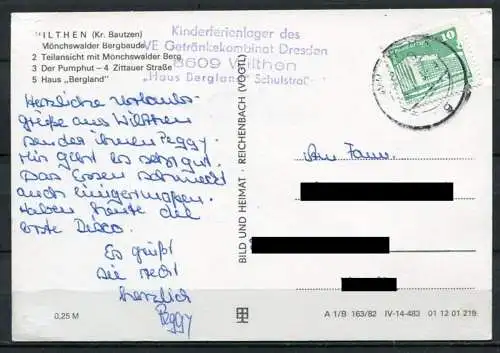 WILTHEN (Kr. Bautzen)
Mönchswalder Bergbaude
2 Teilansicht mit Mönchswalder Berg
3 Der Pumphut - 4 Zittauer Straße
5 Haus „Bergland"
Kinderferienlager des
VE Getränkekombinat Dresden
8609 Wilthen
„Haus Bergland" Schulstraße
10
Herzliche Urlaubs-
grüße aus Wilthen
sendet ihnen Peggy.
Mir geht es sehr gut.
Das Essen schmeckt
auch einigermaßen.
Haben heute die
erste Disco.
Es grüßt
sie recht
herzlich
Peggy
An Fam.
BILD UND HEIMAT · REICHENBACH (VOGTL)
0,25 M
A 1/B 163/82 IV-14-483 01 12 01 219